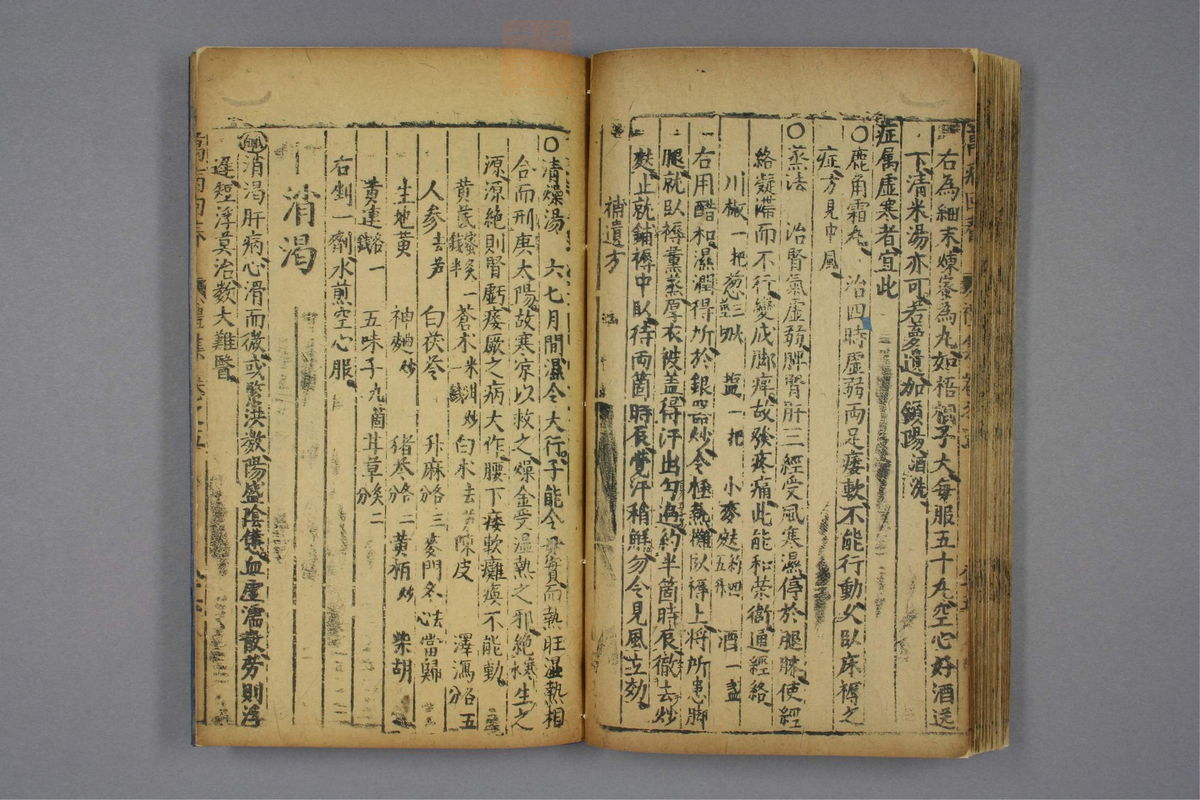 右為細末煉蜜為九如梧桐子大每服五十九空心好酒送
下清米湯亦可若夢遺加鎖陽酒洗
症属虚寒者宜此
〇鹿角霜丸 治四時虚弱両足痿軟不能行動久臥床褥之
症方見中風
〇蒸法 治腎氣虚弱脾腎肝三經受風寒濕停於腿膝使經
絡凝滯而不行變成脚痺故發疼痛此能和荣衛通經絡
川椒一把 葱三 塩一把 小麥麩約四五升 酒一盞
右用醋和濕潤得所於銀器炒令極熱攤臥褥上將所患脚
腿就臥褥薰蒸厚衣被盖得汗出勻遍約半箇時辰徹去炒
麩止就鋪褥中臥待両箇時辰覺汗稍解勿令見風立効
補遺方
〇清燥湯 六七月間濕令大行子能令母實而熱旺湿熱相
合而刑庚大陽故寒凉以救之燥金受湿熱之邪絶寒生之
源源絶則腎虧痿厥之病大作腰下痿軟癱瘓不能動
黄芪蜜炙一錢半 蒼术米泔炒一錢 白术去芦 陳皮 澤瀉各五分
人参去芦 白茯苓 升麻各三分 麥門冬去心 當歸
生地黄 神麯炒 猪苓各二分 黄栢炒 柴胡
黄連各一錢 五味子九箇 甘草炙二分
右剉一劑水煎空心服
消渴
脉 消渴肝病心滑而微或緊洪数陽盛陰憊血虚濡散労則浮
遲短浮莫治数大難醫